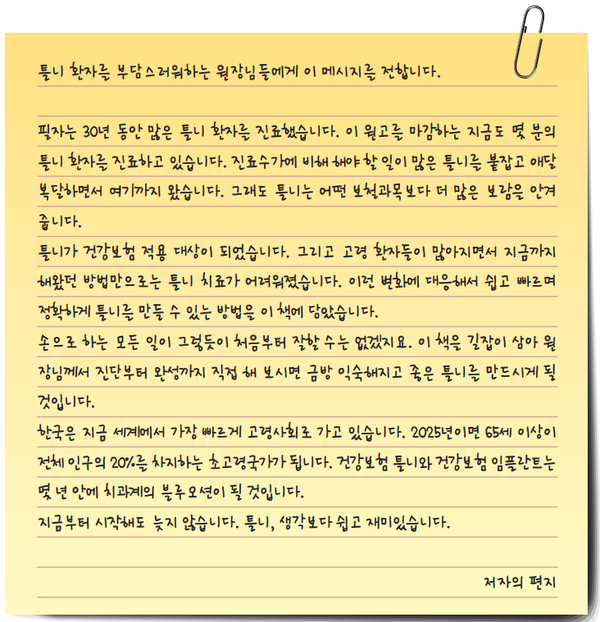 틀니 환자를 부담스러워하는 원장님들에게 이 메시지를 전합니다.
필자는 30년 동안 많은 틀니 환자를 진료했습니다. 이 원고를 마감하는 지금도 몇 분의
틀니 환자를 진료하고 있습니다. 진료수가에 비해 해야 할 일이 많은 틀니를 붙잡고 애달
복달하면서 여기까지 왔습니다. 그래도 틀니는 어떤 보철과목보다 더 많은 보람을 안겨
줍니다.
틀니가 건강보험 적용 대상이 되었습니다. 그리고 고령 환자들이 많아지면서 지금까지
해왔던 방법만으로는 틀니 치료가 어려워졌습니다. 이런 변화에 대응해서 쉽고 빠르며
정확하게 틀니를 만들 수 있는 방법을 이 책에 담았습니다.
손으로 하는 모든 일이 그렇듯이 처음부터 잘할 수는 없겠지요. 이 책을 길잡이 삼아 원
장님께서 진단부터 완성까지 직접 해 보시면 금방 익숙해지고 좋은 틀니를 만드시게 될
것입니다.
한국은 지금 세계에서 가장 빠르게 고령사회로 가고 있습니다. 2025년이면 65세 이상이
전체 인구의 20%를 차지하는 초고령국가가 됩니다. 건강보험 틀니와 건강보험 임플란트는
몇 년 안에 치과계의 블루오션이 될 것입니다.
지금부터 시작해도 늦지 않습니다. 틀니, 생각보다 쉽고 재미있습니다.
저자의 편지